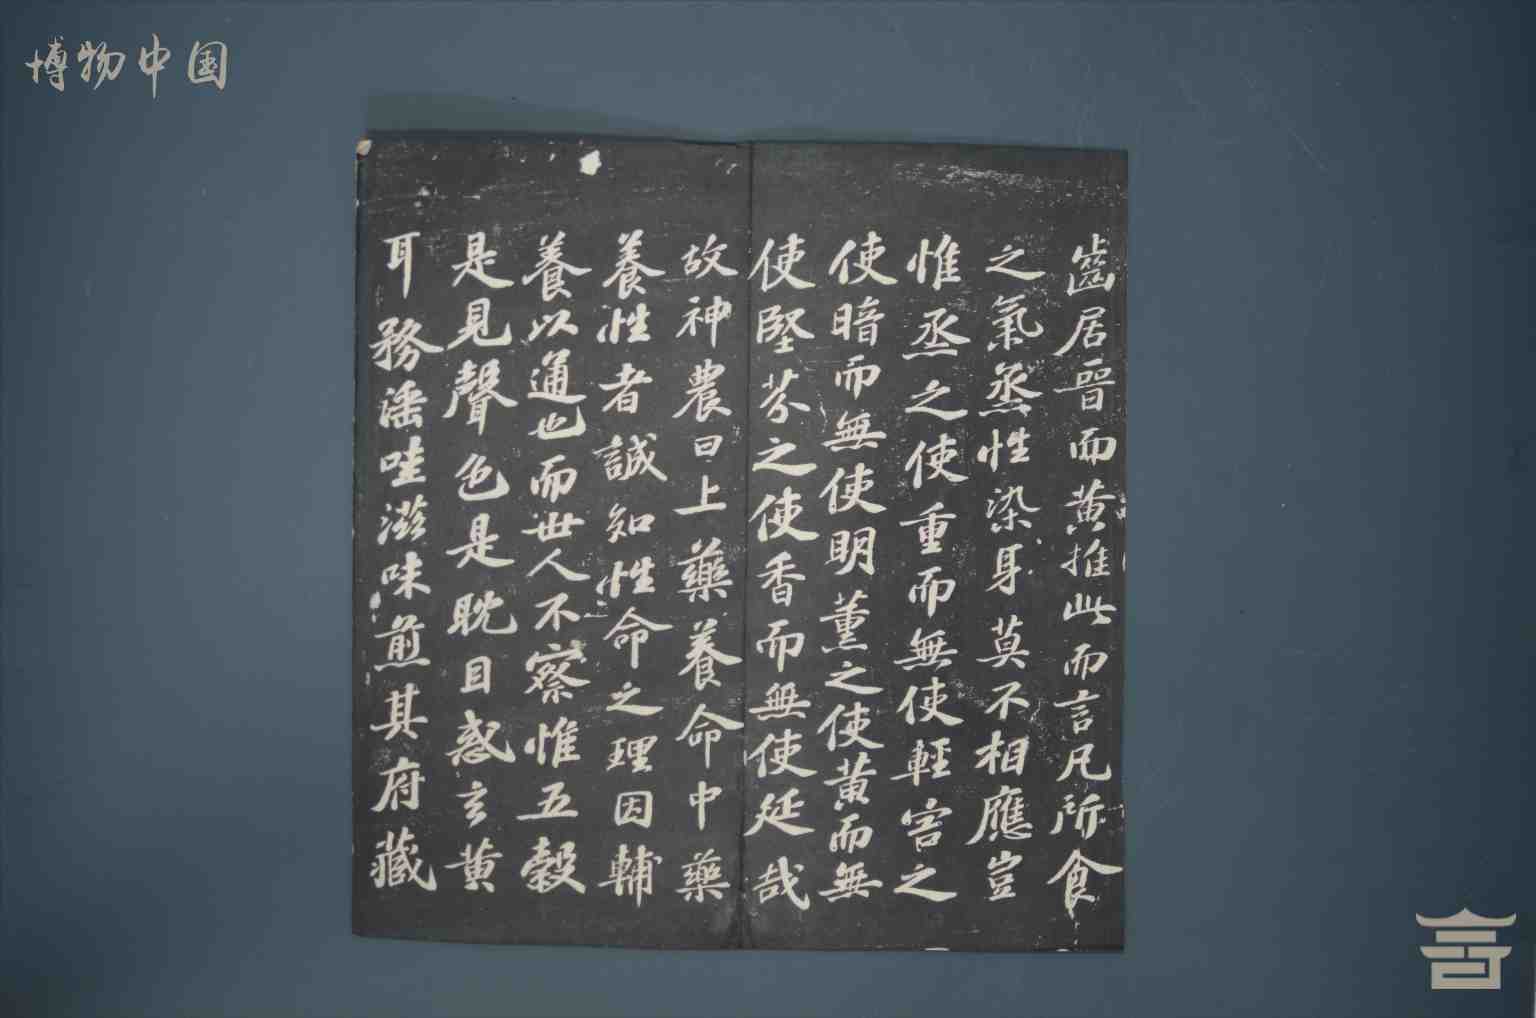 博物中国
齒居晉而黄推此而言凡所食
之氣烝性染身莫不相應豈
惟烝之使重而無使輕害之
使暗而無使明薰之使黄而無
使堅芬之使香而無使延哉
故神農曰上藥養命中藥
養性者誠知性命之理因輔
養以通也而世人不察惟五穀
是見聲色是耽目惑玄黄
耳務淫哇滋味煎其府藏